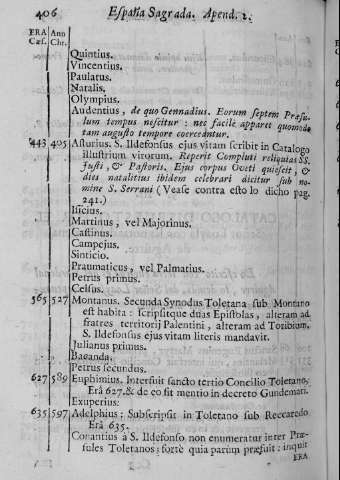 406 España Sagrada. Apend. 2.
ERA Cæs. Ann Chr.
Quintius.
Vincentius.
Paulatus.
Natalis.
Olympius.
Audentius, de quo Gennadius. Eorum septem Præsu-
lum tempus nescitur: nec facilè apparet quomodo
tam angusto tempore coerceantur.
443 405 Asturius. S. Ildefonsus ejus vitam scribit in Catalogo
illustrium virorum. Reperit Compluti reliquias SS.
Justi, & Pastoris. Ejus corpus Oveti quiescit, &
dies natalitius ibidem celebrari dicitur sub no-
mine S. Serrani (Vease contra esto lo dicho pag.
241.)
Isicius.
Martinus, vel Majorinus.
Castinus.
Campejus.
Sinticio.
Praumaticus, vel Palmatius.
Petrus primus.
Celsus.
565 527 Montanus. Secunda Synodus Toletana sub Montano
est habita: scripsitque duas Epistolas, alteram ad
fratres territorij Palentini, alteram ad Toribium.
S. Ildefonsus ejus vitam literis mandavit.
Julianus primus.
Bacanda.
Petrus secundus.
627 589 Euphimius. Interfuit sancto tertio Concilio Toletano.
Erâ 627. & de eo fit mentio in decreto Gundemari.
Exuperius.
635 597 Adelphius: Subscripsit in Toletano sub Reccaredo
Erâ 635.
Conantius à S. Ildefonso non enumeratur inter Præ-
sules Toletanos: fortè quia parùm præfuit: inquit
ERA